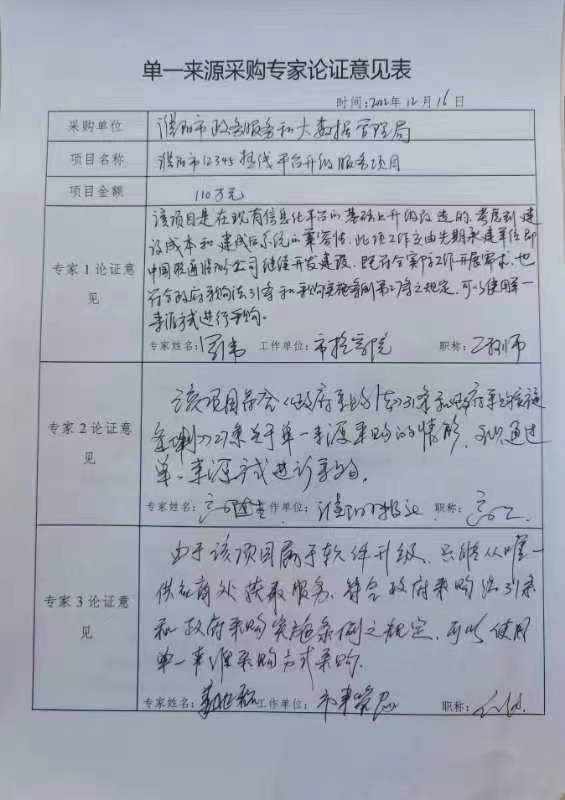 单一来源采购专家论证意见表
时间:2022年12月16日
采购单位 濮阳市政务服务和大数据管理局
项目名称 濮阳市12345热线平台升级服务项目
项目金额 110万元
专家1论证意见
该项目是在现有信息化平台的基础上升级改造的,考虑到建
设成本和建成后系统的兼容性,此项工作应由先期承建单位即
中国联通濮阳分公司继续开发建设,既符合实际工作开展需求,也
符合政府采购法31条和采购实施条例第27条之规定,可以使用单一
来源方式进行采购。
专家姓名: 工作单位:市检察院 职称:工程师
专家2论证意见
该项目符合《政府采购法》31条和政府采购实施
条例》27条关于单一来源采购的情形,可以通过
单一来源方式进行采购。
专家姓名: 工作单位: 职称:高工
专家3论证意见
由于该项目属于软件升级,只能从唯一
供应商处获取服务,符合政府采购法31条
和政府采购实施条例之规定,可以使用
单一来源采购方式采购。
专家姓名: 工作单位: 职称: